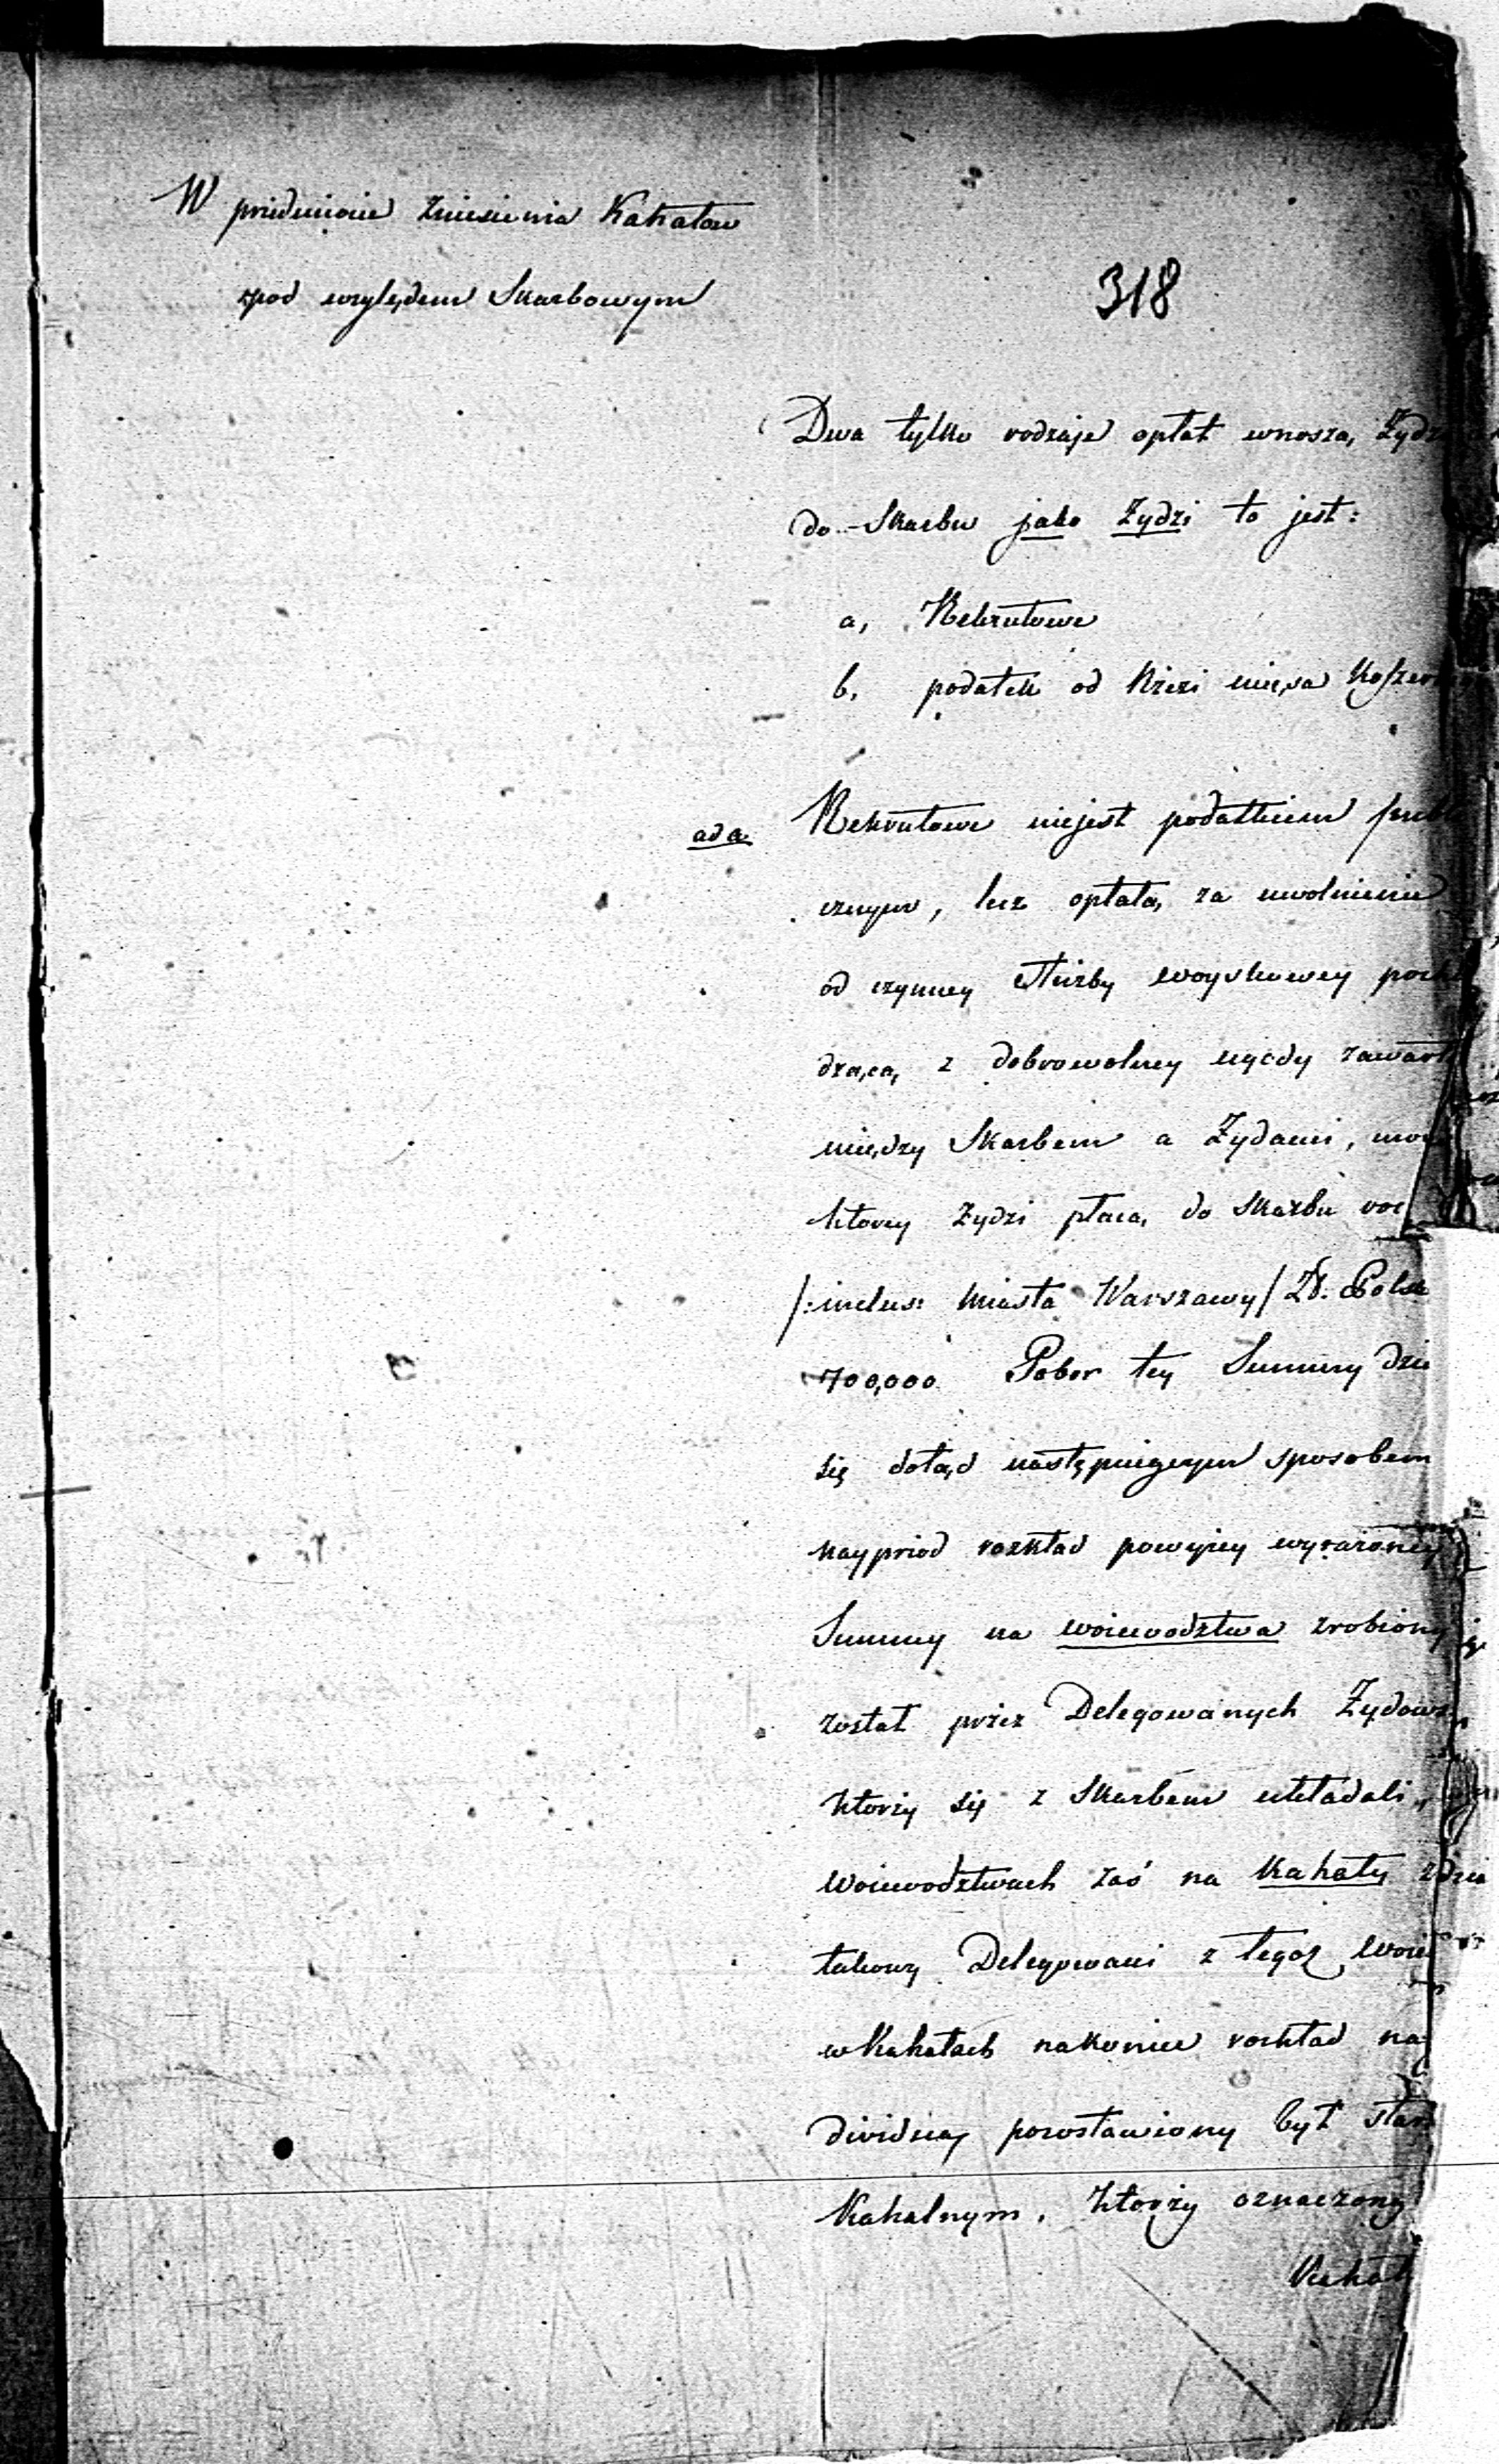 W przedmiocie zniesienia Kahałow
pod względem Skarbowym
318
Dwa tylko rodzaje opłat wnoszą Żydz
do Skarbu jako Żydzi to jest:
a, Rekrutowe
b, podatek od Rzezi mięsa Koszer
ad a Rekrutowe niejest podatkiem publi
cznym, lecz opłatą za uwolnienie
od czynney służby woyskowey pocho
dzącą z dobrowolney ugody zawart
między Skarbem a Żydami, mocą
ktorey Żydzi płacą do Skarbu roc
/:inclus: Miasta Warszawy/ Zł. Polsk
700,000 Pobor tey Summy dzie
się dotąd następuigcym sposobem
nayprzod rozkład powyżey wyrażoney
Summy na woiewodztwa zrobiony
został przez Delegowanych Żydows
ktorzy się z Skarbem układali,
Woiewodztwach zaś na Kahały zdzia
takowy Delegowani z tegoż Woie
w Kahałach nakoniec rozkład na
dividua, pozostawiony był star
Kahalnym, ktorzy oznaczony
Kahał